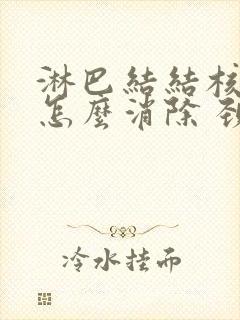 淋巴結結核
怎麼消除
冷水挂而